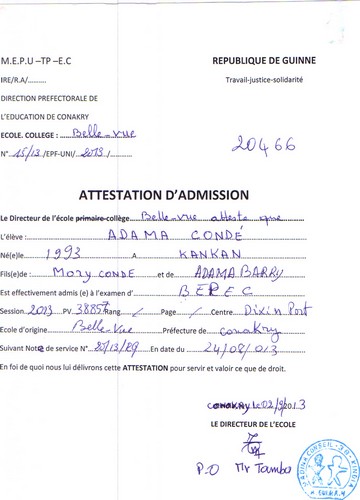 M.E.P.U –TP –E.C
REPUBLIQUE DE GUINNE
IRE/R.A/..........
Travail-justice-solidarité
DIRECTION PREFECTORALE DE
L'EDUCATION DE CONAKRY
ECOLE. COLLEGE : ......Belle-vue
N°..15/13./EPF-UNI/..2013./..........
20466
ATTESTATION D'ADMISSION
Le Directeur de l'école primaire-collège....Belle-vue atteste que
L'élève : ADAMA CONDÉ
Né(e)le 1993 A KANKAN
Fils(e)de : Mory CONDE et de ADAMA BARRY
Est effectivement admis (e) à l'examen d' BEPEC
Session..2013 PV. 38857 Rang / Page / Centre Dixin Port
Ecole d'origine Belle-Vue Préfecture de conakry
Suivant Note de service N° /13/89 En date du 24/08/013
En foi de quoi nous lui délivrons cette ATTESTATION pour servir et valoir ce que de droit.
CONAKRY Le 02/9/2013
LE DIRECTEUR DE L'ECOLE
P.O Mr Tambo
MADINA CONSEIL KINDIA